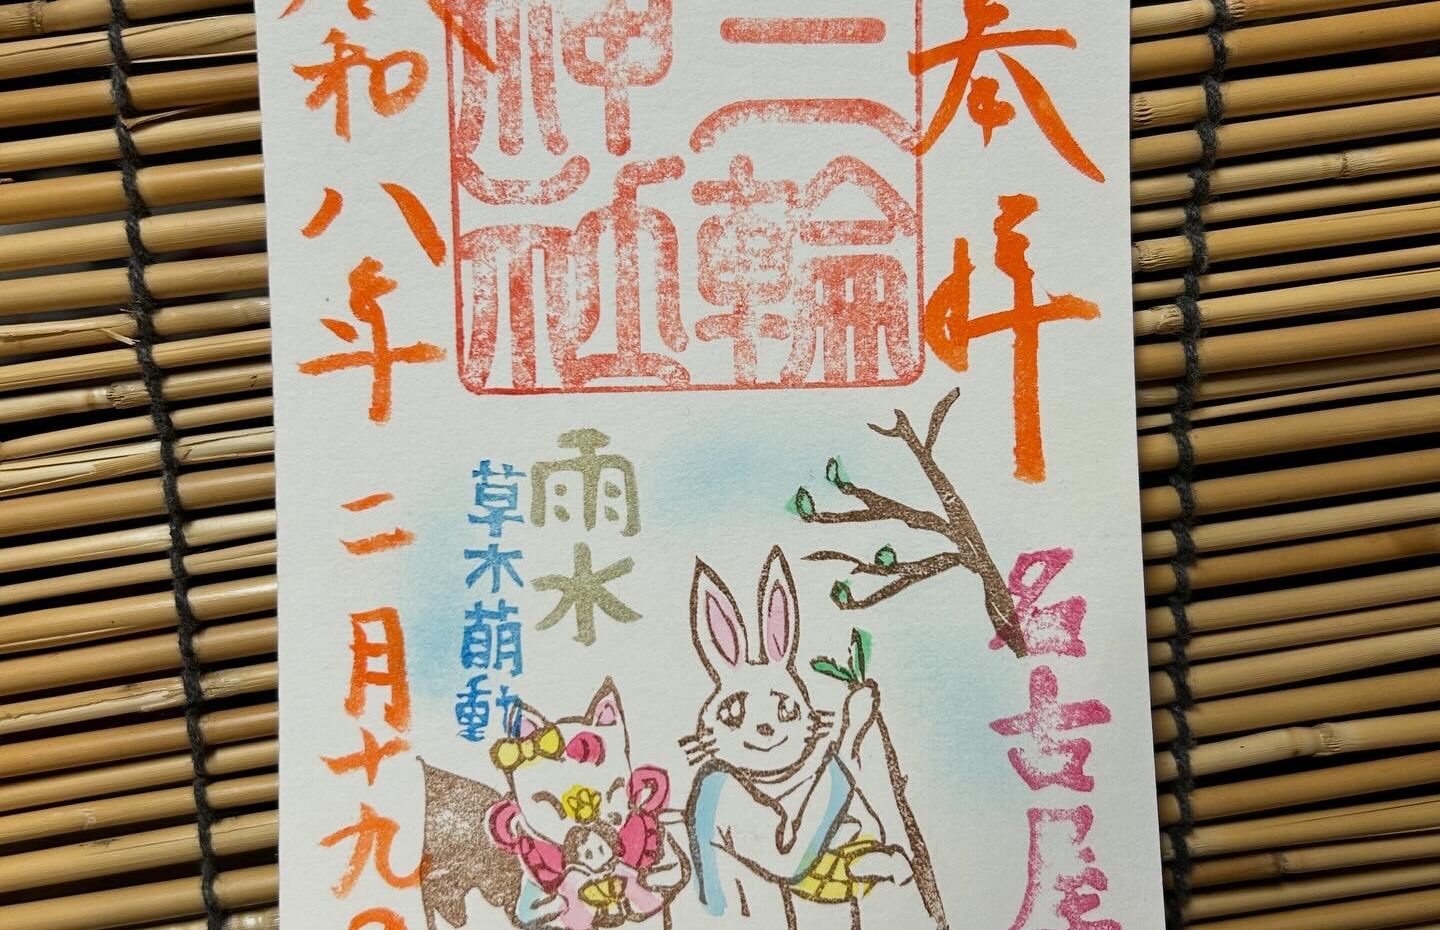 奉拝
三輪
神社
名古屋
雨水
草木萌動
令和八年二月十九日